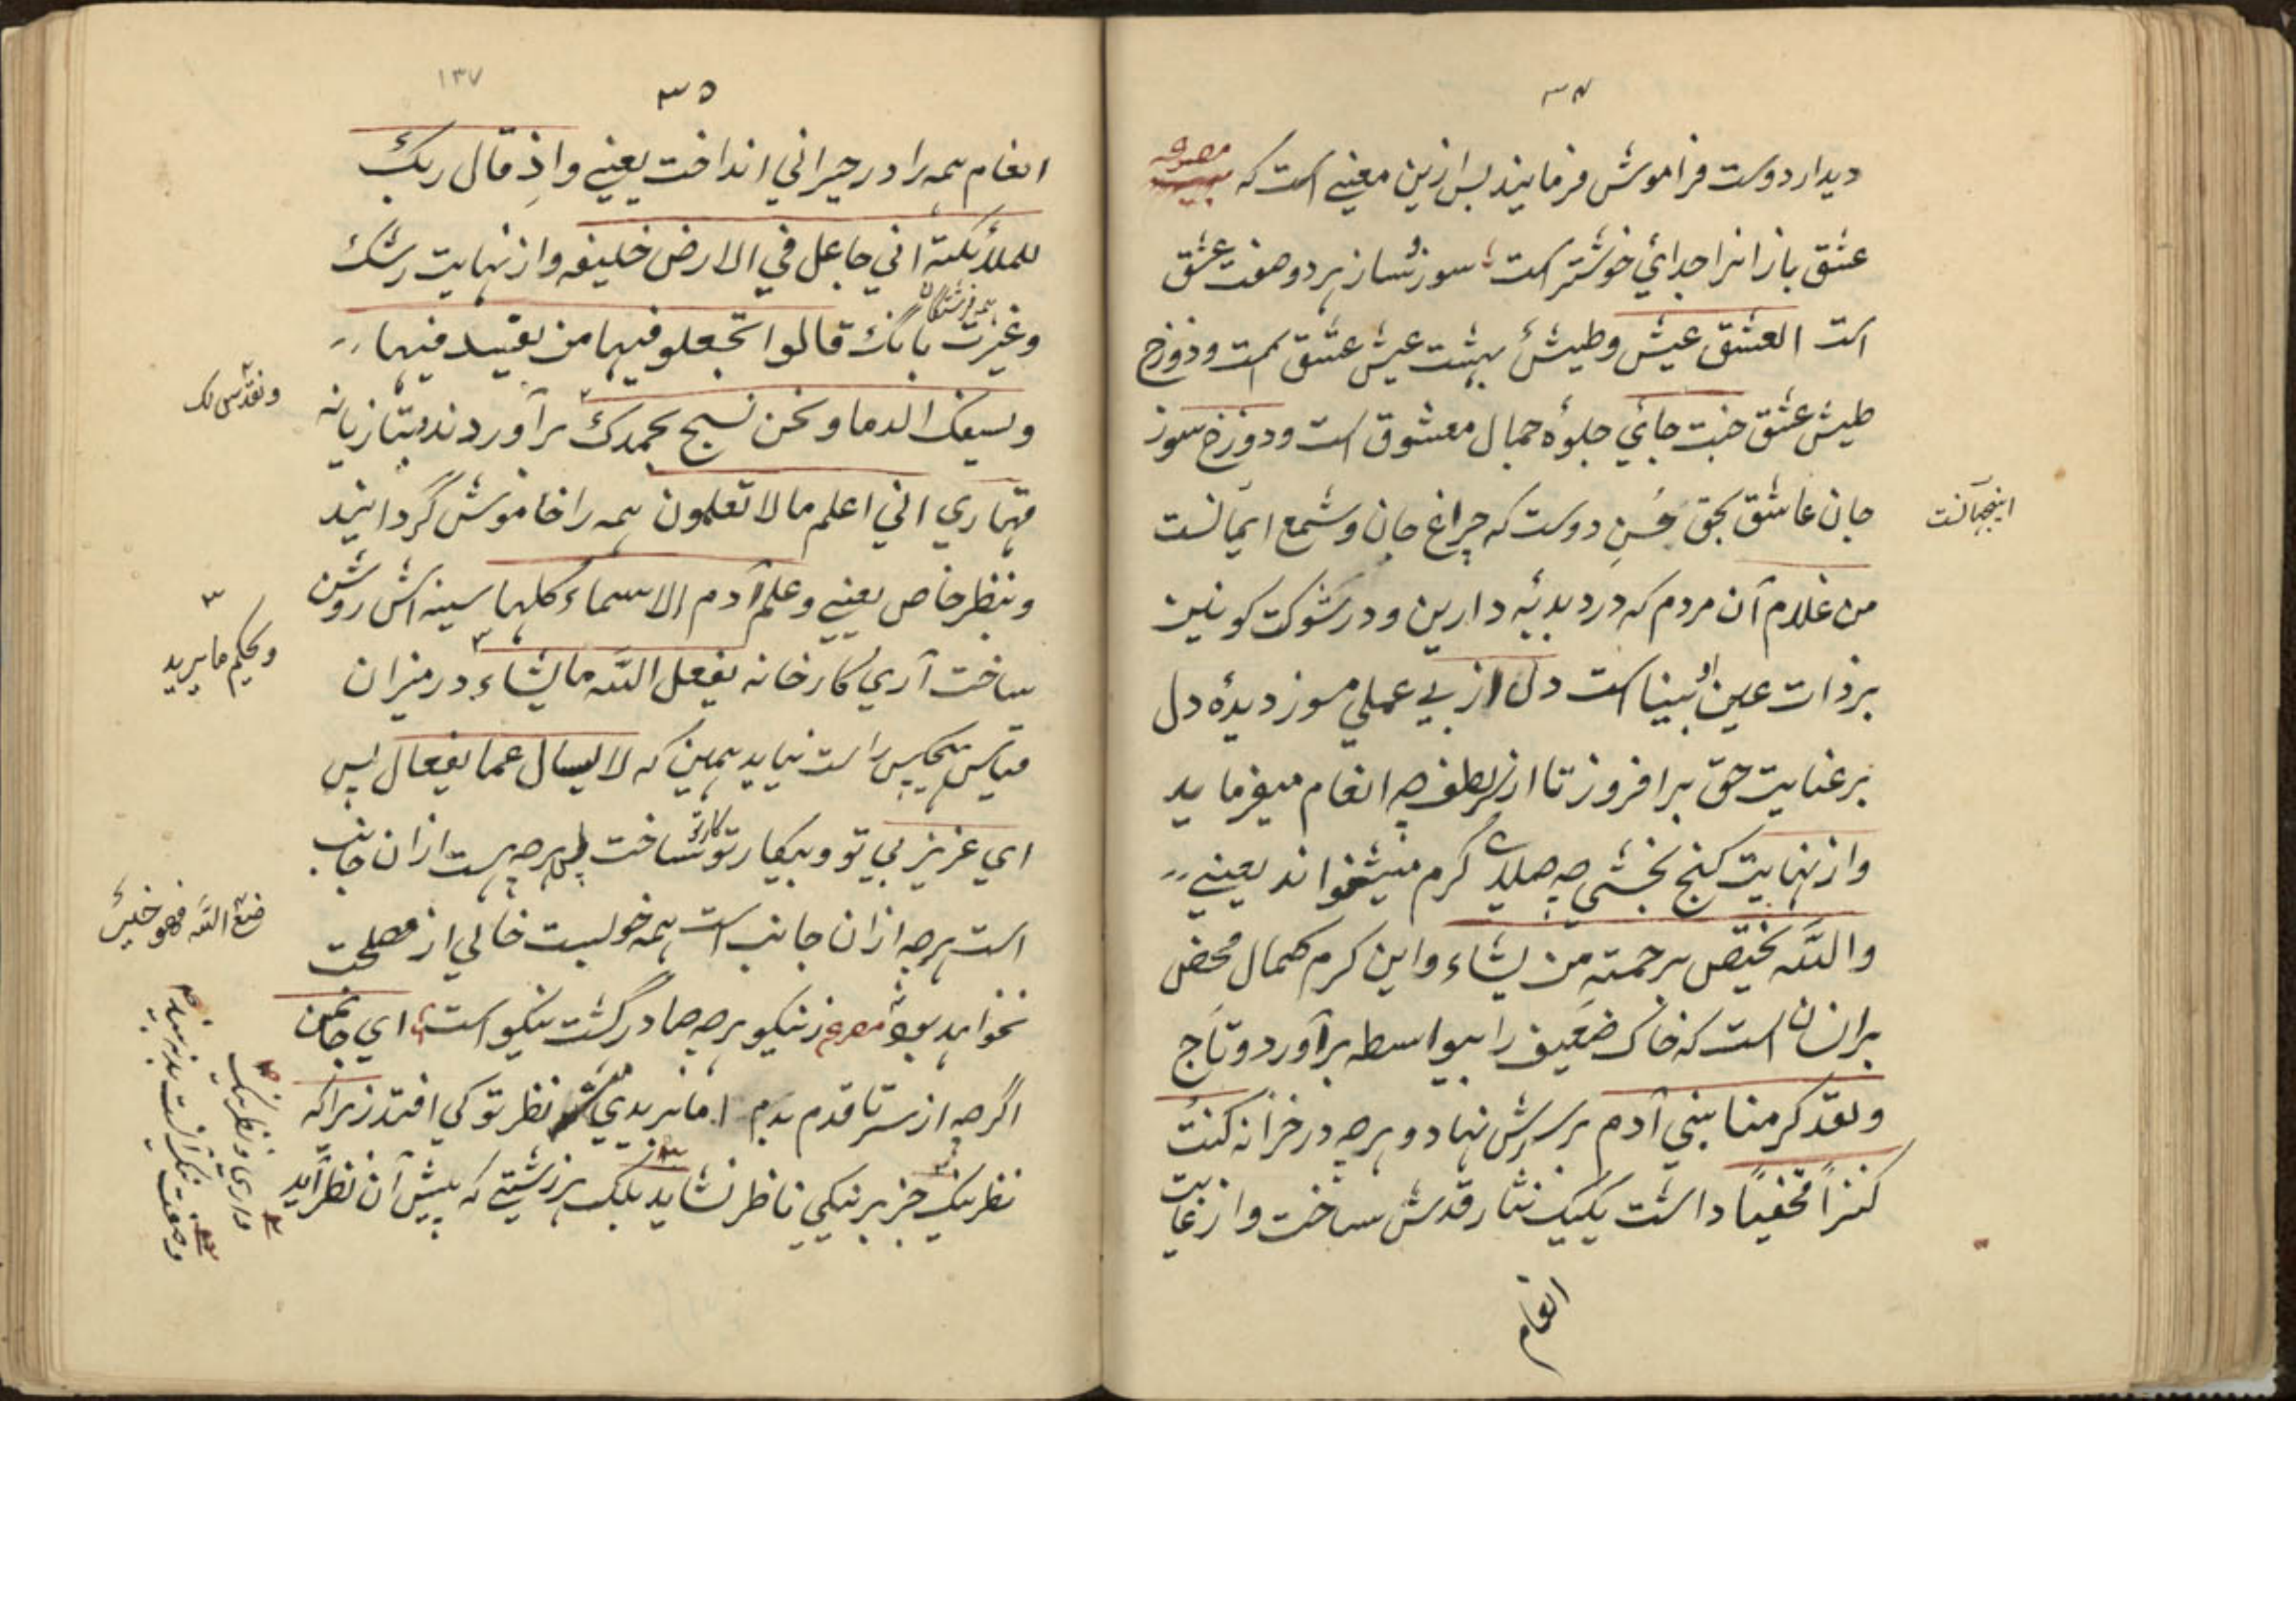 ٣٤
دیدار دوست فراموش فرمایند پس ازین معنے است که مصرعه
عشق بازانرا جدائي خوشتر است سوز و ساز هر دو صفت عشق
است العشق عیش وطیش بهشت عیش عشق است ودوزخ
طیش عشق جنت جائي جلوهٔ جمال معشوق است ودوزخ سوز
جان عاشق بحق حُسنِ دوست که چراغ جان وشمع ایمانست
اینجهانست
من غلام آن مردم که در دبدبهٔ دارین ودر شوکت کونین
بر ذات عین او بینا است دل از بے عملي مسوز دیدهٔ دل
بر عنایت حق برافروز تا از سر لطف چه انعام میفرماید
واز نهایت گنج بخشي چه صلاي کرم میشنواند یعنے
والله یختص برحمته من یشاء واین کرم کمال محض
بران است که خاک ضعیف را بیواسطه برآورد وتاج
ولقد کرمنا بني آدم بر سرش نهاد و هرچه در خزانه کنت
کنزاً مخفیاً داشت یکیک نثار قدمش ساخت واز غایت
انعام
١٣٧
٣٥
انعام همه را در حیراني انداخت یعنے واذ قال ربک
للملائکة اني جاعل في الارض خلیفه واز نهایت رشک
وغیرت همه فرشتگان بانگ قالوا اتجعلو فیها من یفسد فیها
ویسفک الدما ونحن نسبح بحمدک برآوردند بتازیانه
ونقدس لک
قهاري اني اعلم مالا تعلمون همه را خاموش گردانید
وبنظر خاص یعنے وعلم آدم الاسماء کلها سینه اش روشن
ساخت آري کارخانه یفعل الله ما یشاء در میزان
ویحکم ما یرید
قیاس هیچکس راست نیاید همین که لا یسال عما یفعال پس
اي عزیز بي تو وبیکار تو کار تو ساخت پس هرچه هست ازان جانب
است هرچه ازان جانب است همه خوبست خالي از مصلحت
صنع الله فهو خیر
نخواهد بود مصرع ز نیکو هرچه صادر گشت نیکو است اي جانمن
اگرچه از سر تا قدم بدم اما نه بدي نظر تو کي افتد زیراکه
نظر نیک جز بر نیکي ناظر نشاید بلک هر زشتے که پیش آن نظر آید
داري ونظر نیک